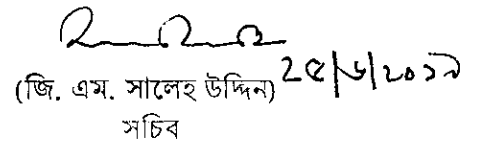 (জি. এম. সালেহ উদ্দিন) ২৫/৬/২০১৯
সচিব